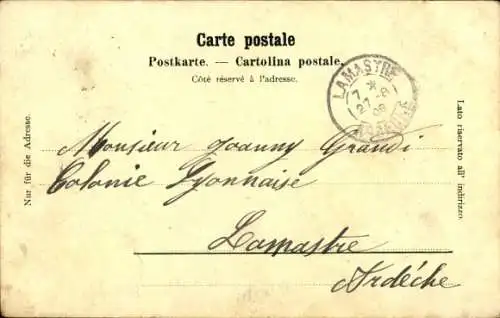 Carte postale
Postkarte. — Cartolina postale.
Côté réservé à l'adresse.
LAMASTRE
ARDÈCHE
Nur für die Adresse.
Lato riservato all' indirizzo.
Monsieur Joanny Grandi
Colonie Lyonnaise
Lamastre
Ardèche